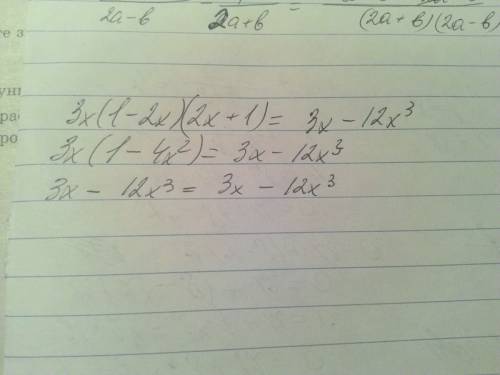 2a-b = 2a+b = (2a+b)(2a-b)
3x(1-2x)(2x+1) = 3x - 12x³
3x(1-4x²) = 3x - 12x³
3x - 12x³ = 3x - 12x³